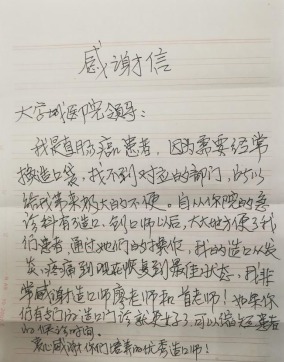 感谢信
大学城医院领导：
我是直肠癌患者，因为需要经常
换造口袋，找不到对应的部门，所以
给我带来极大的不便。自从你院的急
诊科有了造口、创口师以后，大大地方便了我
们患者，通过她们的操作，我的造口从发
炎、疼痛到现在恢复到最佳状态，我非
常感谢造口师廖老师和首老师！如果你
们有专门的造口门诊就更好了，可以缩短患者
的便诊时间。
衷心感谢你们培养的优秀造口师！